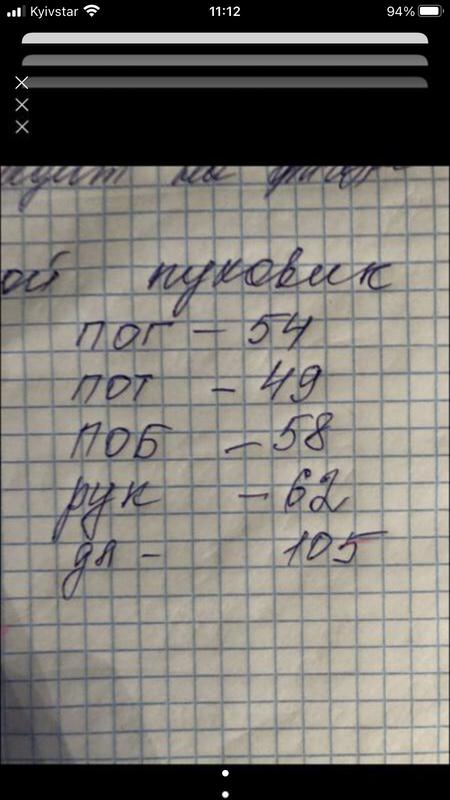 Kyivstar 11:12 94%
ой пуховик
ПОГ - 54
ПОТ - 49
ПОБ - 58
рук - 62
дл - 105